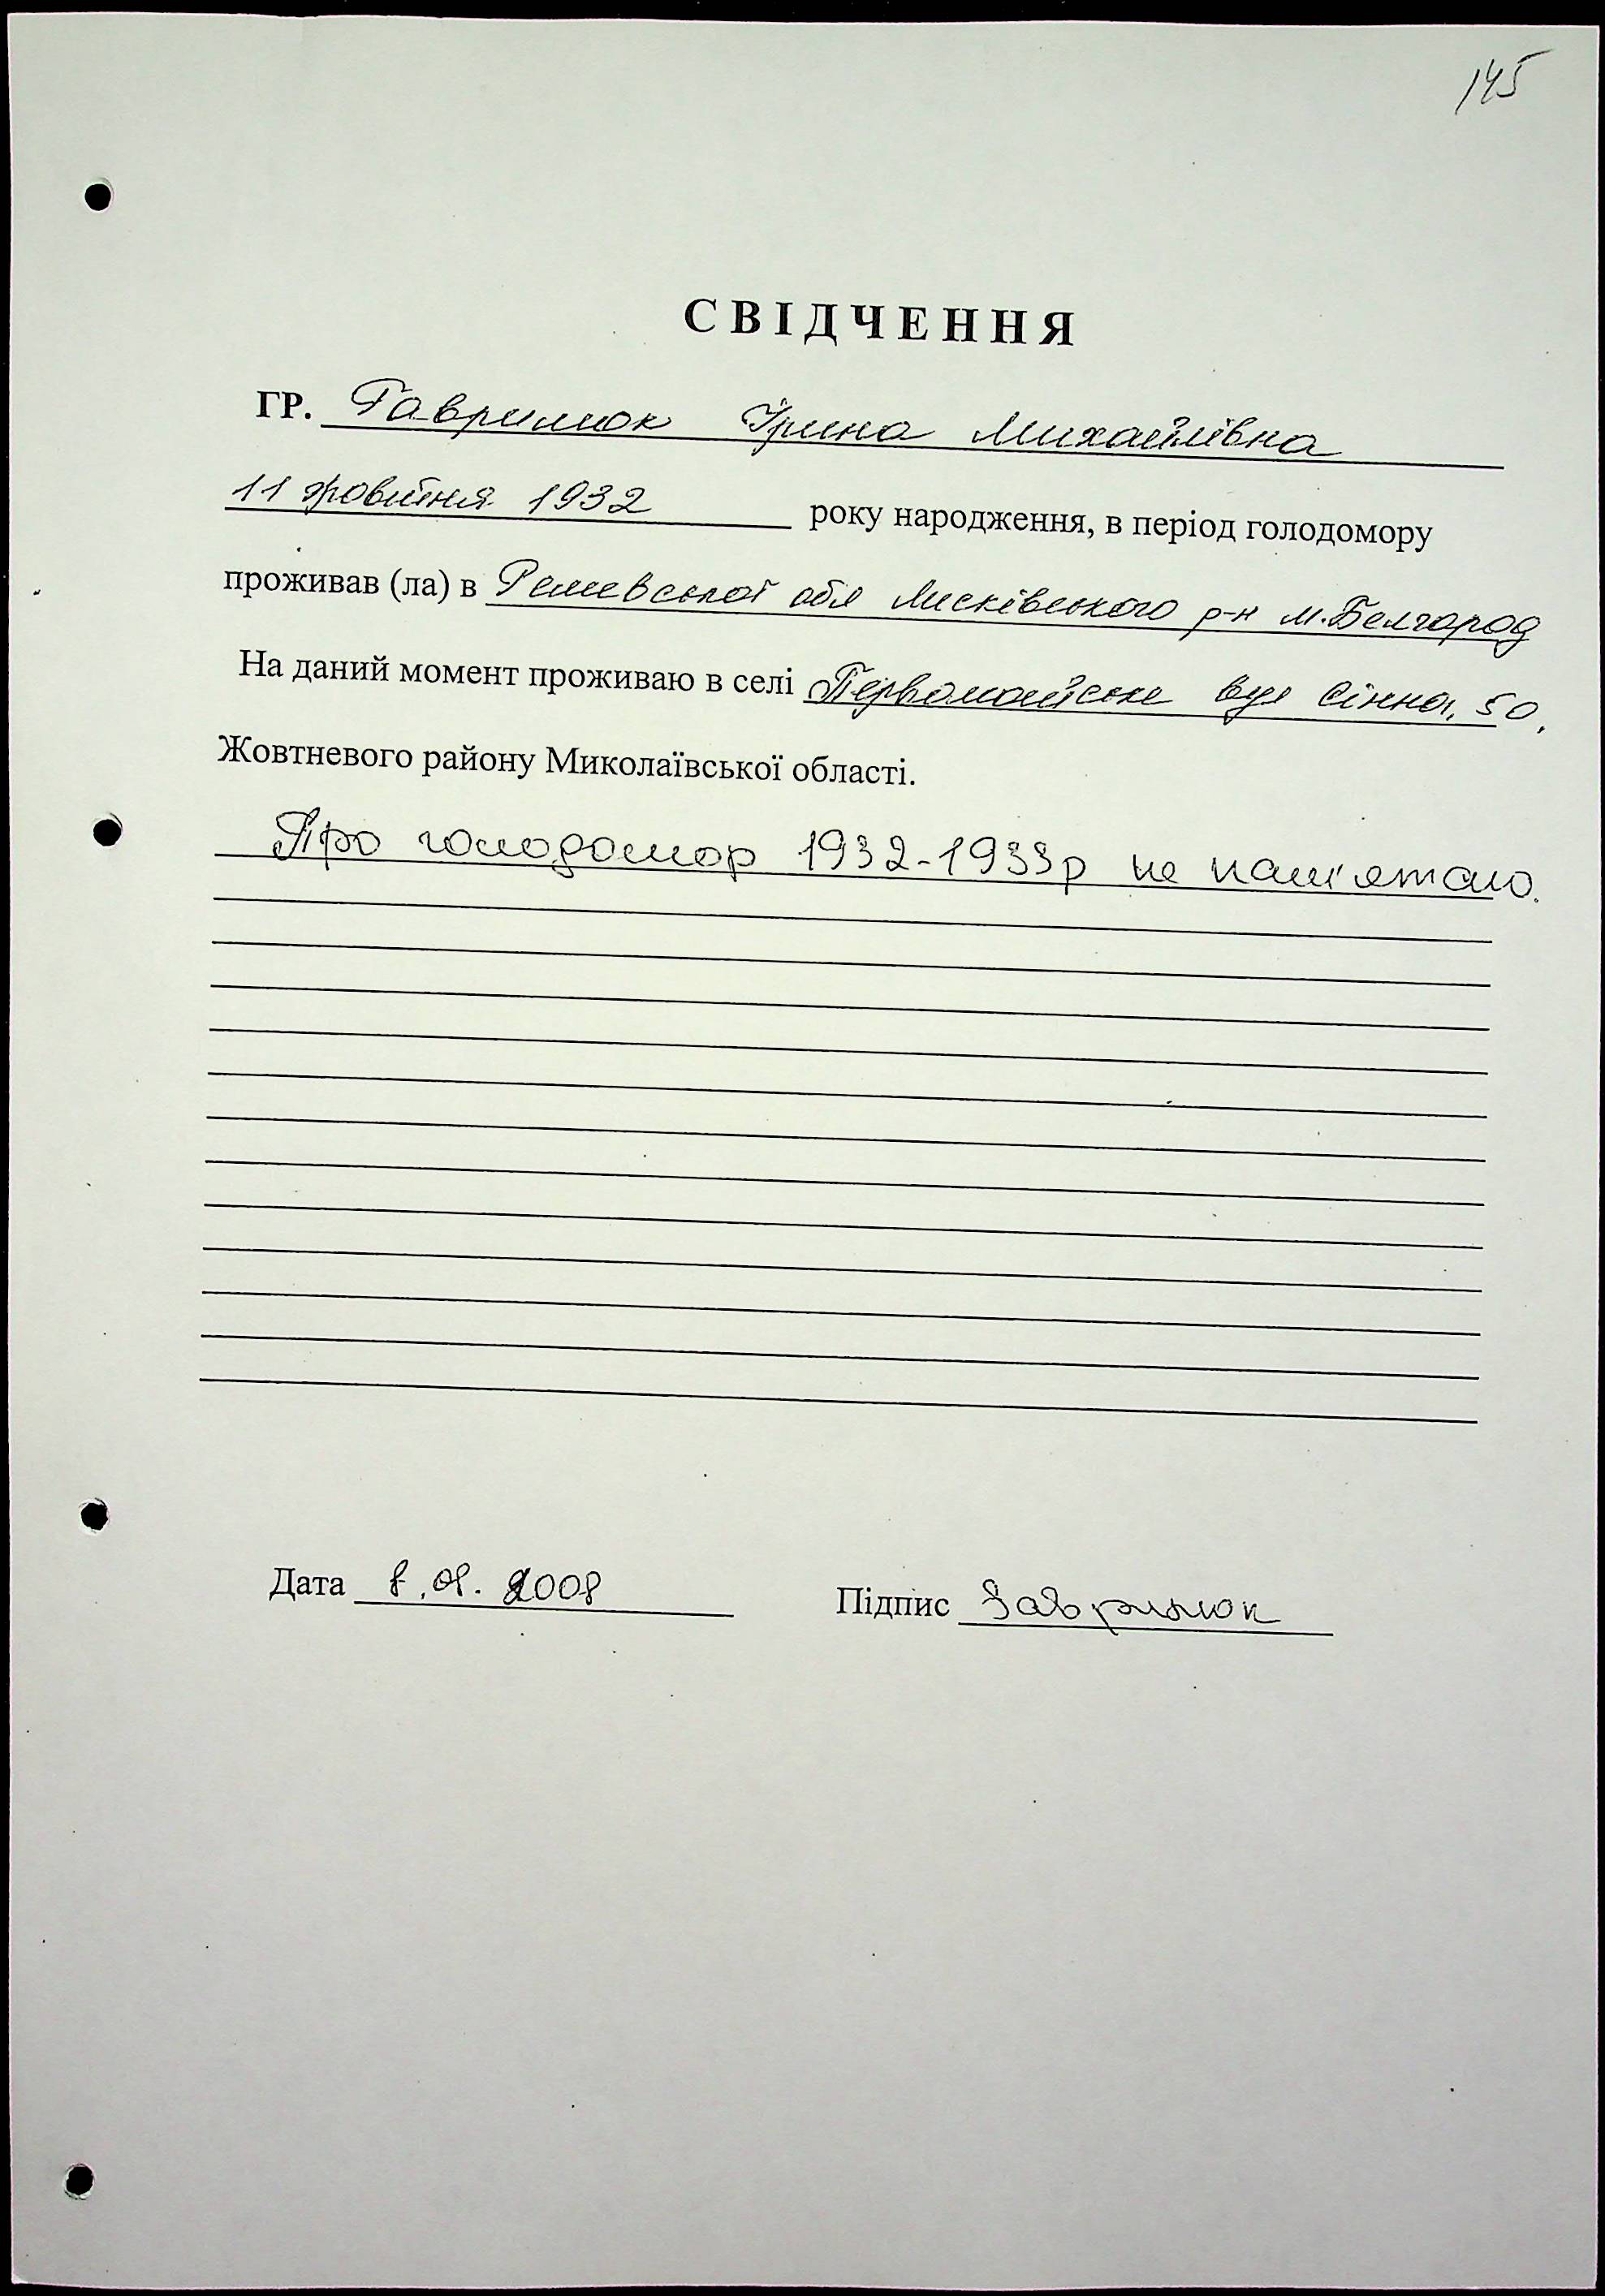 145
СВІДЧЕННЯ
ГР. Гаврилюк Ірина Михайлівна
11 жовтня 1932 року народження, в період голодомору
проживав (ла) в обл Лисківського р-н м. Белгород
На даний момент проживаю в селі Первомайське вул Сінна, 50,
Жовтневого району Миколаївської області.
Про голодомор 1932-1933р не пам'ятаю.
Дата 8.08.2008 Підпис Гаврилюк